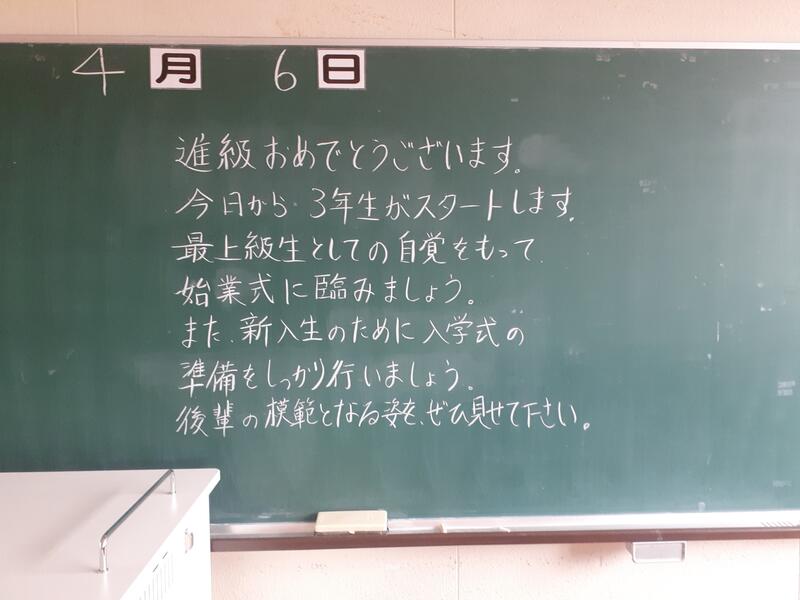 4月 6日
進級おめでとうございます。
今日から3年生がスタートします。
最上級生としての自覚をもって、
始業式に臨みましょう。
また、新入生のために入学式の
準備をしっかり行いましょう。
後輩の模範となる姿を、ぜひ見せて下さい。